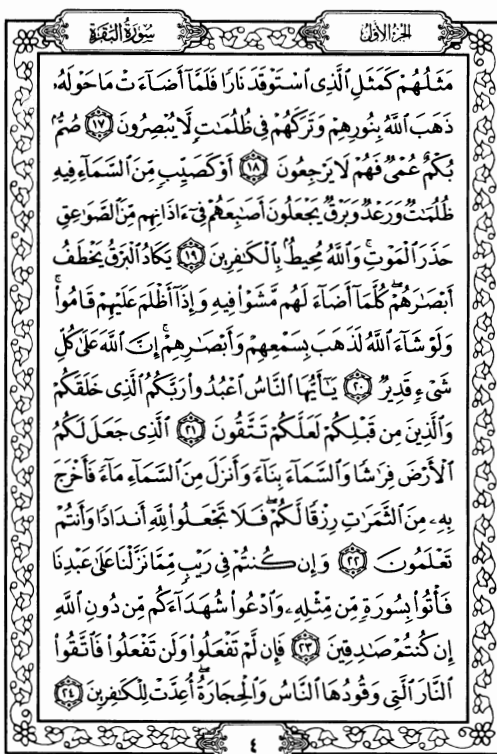 سُورَةُ البَقَرَةِ
الجزء الأول
مَثَلُهُمْ كَمَثَلِ ٱلَّذِى ٱسْتَوْقَدَ نَارًا فَلَمَّآ أَضَآءَتْ مَا حَوْلَهُۥ
ذَهَبَ ٱللَّهُ بِنُورِهِمْ وَتَرَكَهُمْ فِى ظُلُمَٰتٍ لَّا يُبْصِرُونَ ١٧ صُمٌّۢ
بُكْمٌ عُمْىٌ فَهُمْ لَا يَرْجِعُونَ ١٨ أَوْ كَصَيِّبٍ مِّنَ ٱلسَّمَآءِ فِيهِ
ظُلُمَٰتٌ وَرَعْدٌ وَبَرْقٌ يَجْعَلُونَ أَصَٰبِعَهُمْ فِىٓ ءَاذَانِهِم مِّنَ ٱلصَّوَٰعِقِ
حَذَرَ ٱلْمَوْتِ ۚ وَٱللَّهُ مُحِيطٌۢ بِٱلْكَٰفِرِينَ ١٩ يَكَادُ ٱلْبَرْقُ يَخْطَفُ
أَبْصَٰرَهُمْ ۖ كُلَّمَآ أَضَآءَ لَهُم مَّشَوْا۟ فِيهِ وَإِذَآ أَظْلَمَ عَلَيْهِمْ قَامُوا۟ ۚ
وَلَوْ شَآءَ ٱللَّهُ لَذَهَبَ بِسَمْعِهِمْ وَأَبْصَٰرِهِمْ ۚ إِنَّ ٱللَّهَ عَلَىٰ كُلِّ
شَىْءٍ قَدِيرٌ ٢٠ يَٰٓأَيُّهَا ٱلنَّاسُ ٱعْبُدُوا۟ رَبَّكُمُ ٱلَّذِى خَلَقَكُمْ
وَٱلَّذِينَ مِن قَبْلِكُمْ لَعَلَّكُمْ تَتَّقُونَ ٢١ ٱلَّذِى جَعَلَ لَكُمُ
ٱلْأَرْضَ فِرَٰشًا وَٱلسَّمَآءَ بِنَآءً وَأَنزَلَ مِنَ ٱلسَّمَآءِ مَآءً فَأَخْرَجَ
بِهِۦ مِنَ ٱلثَّمَرَٰتِ رِزْقًا لَّكُمْ ۖ فَلَا تَجْعَلُوا۟ لِلَّهِ أَندَادًا وَأَنتُمْ
تَعْلَمُونَ ٢٢ وَإِن كُنتُمْ فِى رَيْبٍ مِّمَّا نَزَّلْنَا عَلَىٰ عَبْدِنَا
فَأْتُوا۟ بِسُورَةٍ مِّن مِّثْلِهِۦ وَٱدْعُوا۟ شُهَدَآءَكُم مِّن دُونِ ٱللَّهِ
إِن كُنتُمْ صَٰدِقِينَ ٢٣ فَإِن لَّمْ تَفْعَلُوا۟ وَلَن تَفْعَلُوا۟ فَٱتَّقُوا۟
ٱلنَّارَ ٱلَّتِى وَقُودُهَا ٱلنَّاسُ وَٱلْحِجَارَةُ ۖ أُعِدَّتْ لِلْكَٰفِرِينَ ٢٤
٤